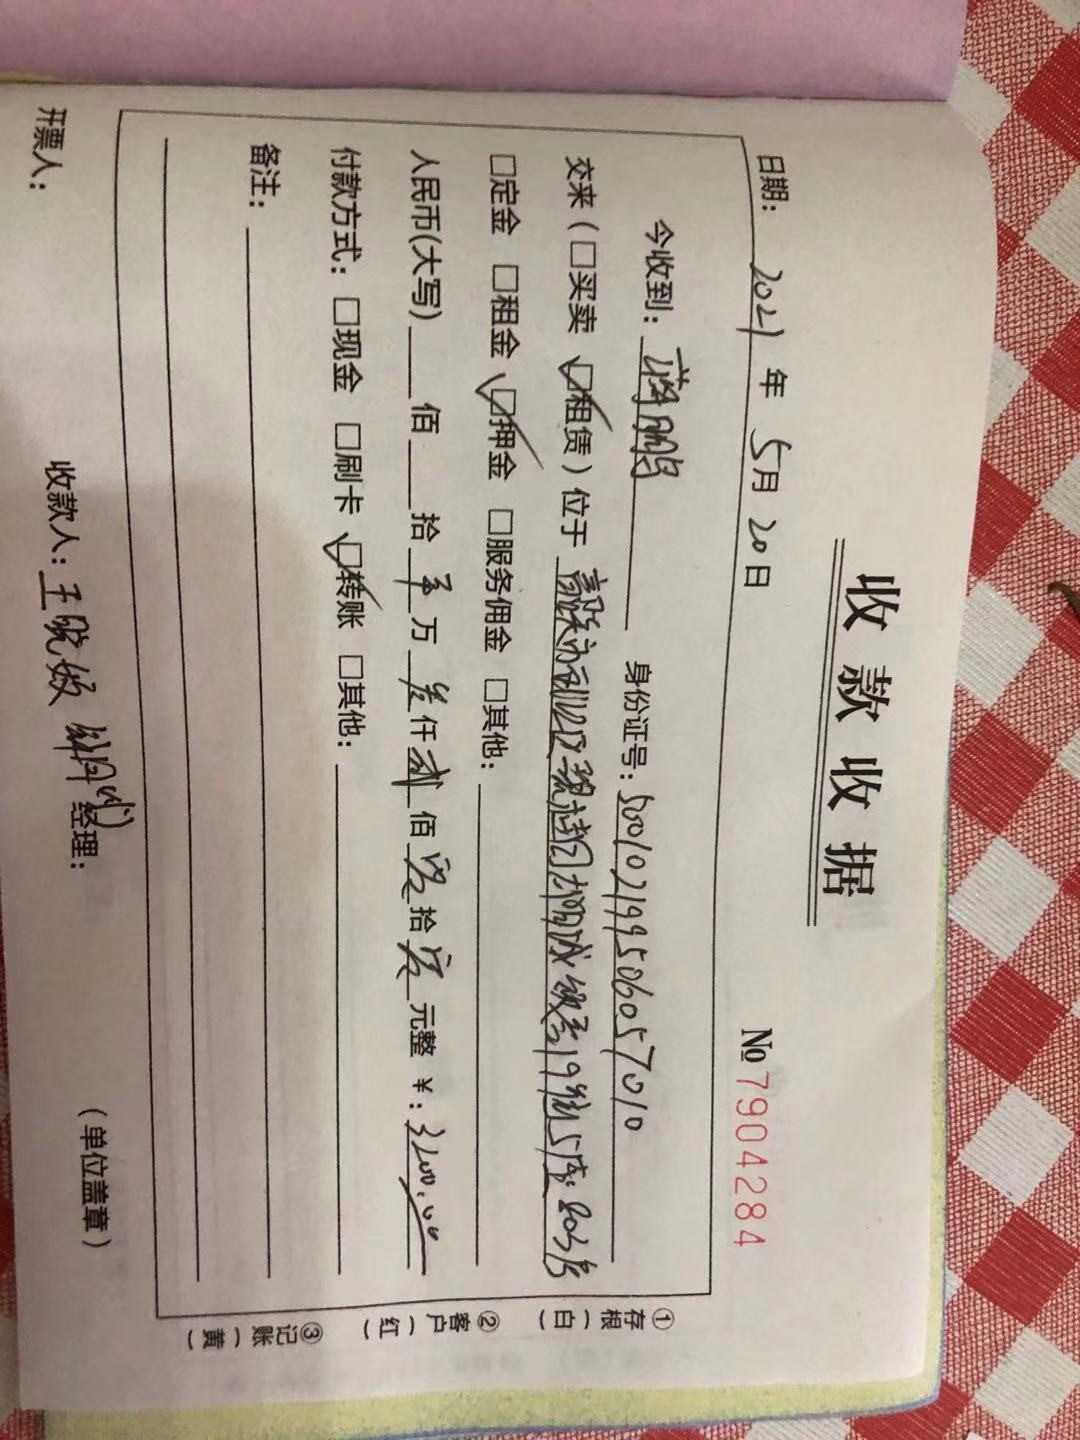 收款收据
日期: 2021年 5月 20日 №7904284
今收到: 蒋鹏 身份证号: 500102199506057010
交来(□买卖 ☑租赁)位于 19街5座803房
□定金 □租金 ☑押金 □服务佣金 □其他:
人民币(大写) 佰 拾 万 仟 贰 佰 零 拾 零 元整 ¥: 3200.00
付款方式: □现金 □刷卡 ☑转账 □其他:
备注:
开票人: 收款人: 王晓敏 经理: (单位盖章)
①存根(白)
②客户(红)
③记账(黄)